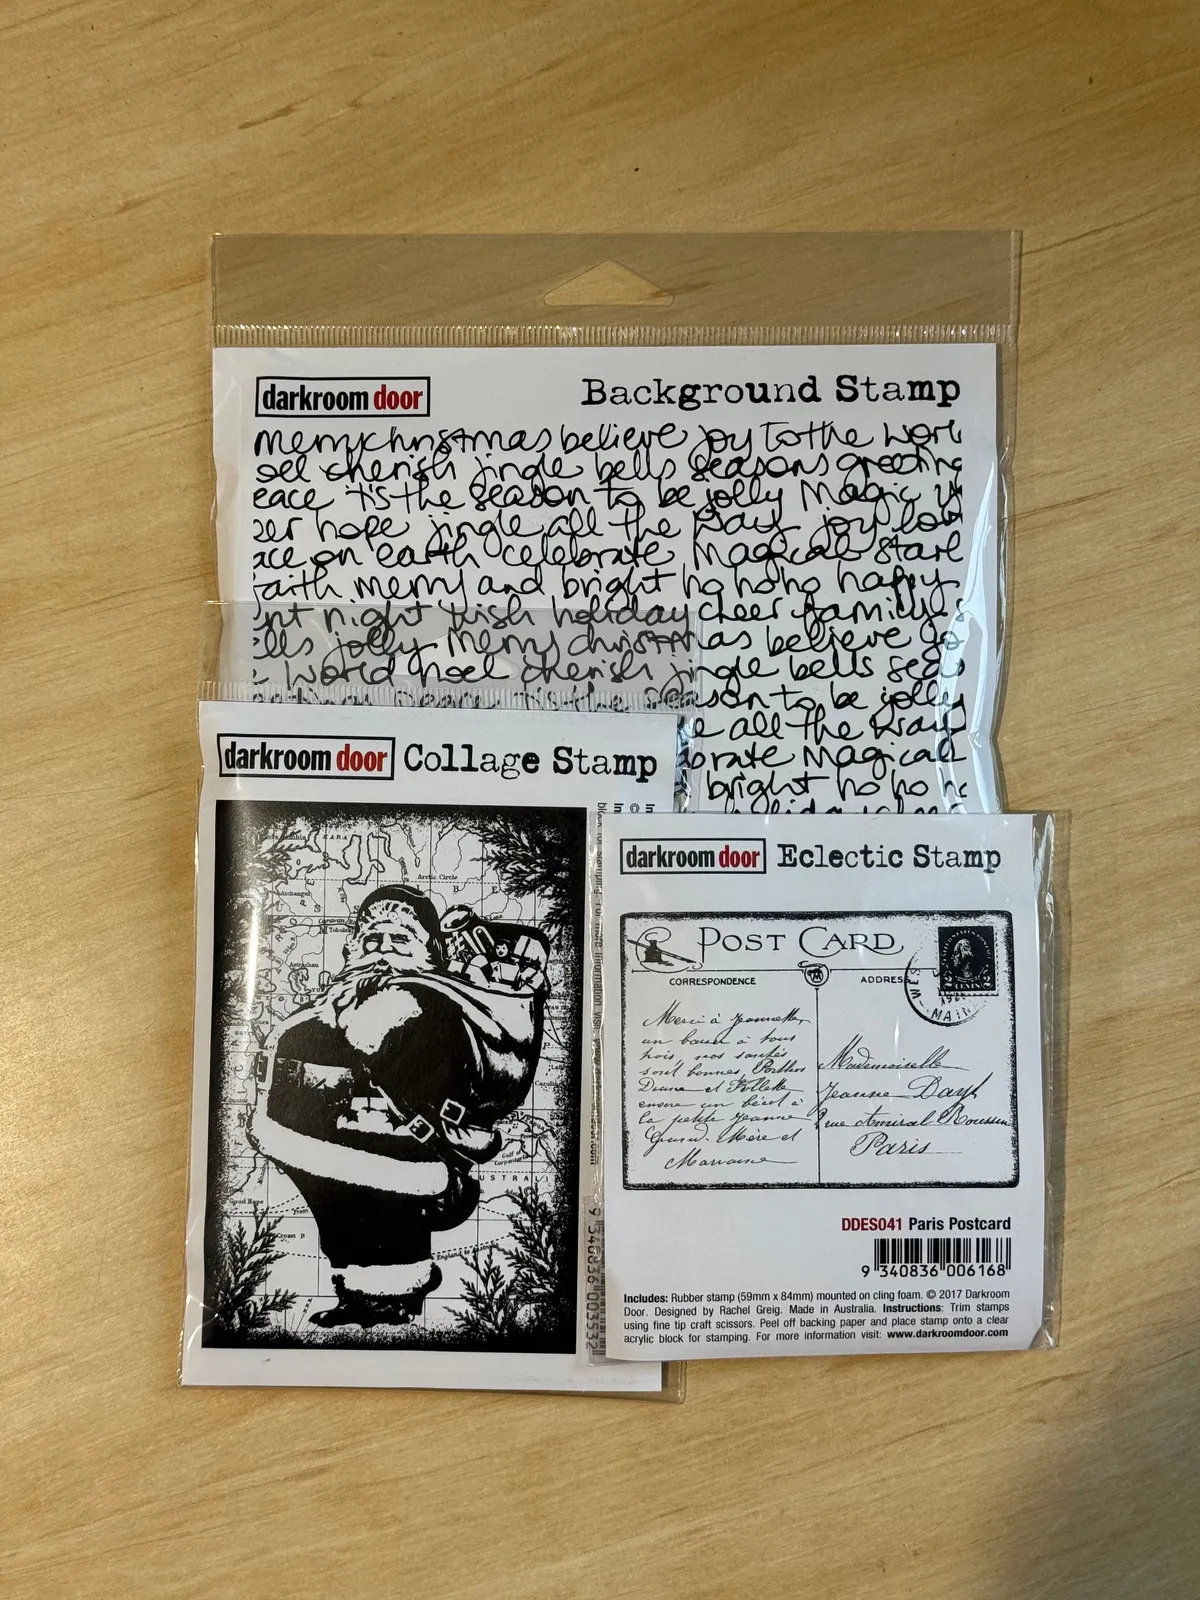 darkroom door Background Stamp
merry christmas believe joy to the
cherish jingle bells seasons
'tis the season to be jolly magic
hope jingle all the way joy
on earth celebrate magical
faith merry and bright ho ho ho happy
night wish holiday cheer family
jolly merry christmas believe
world noel cherish jingle bells
to be jolly
all the way
magical
bright ho ho
darkroom door Collage Stamp
Arctic Circle
darkroom door Eclectic Stamp
POST CARD
CORRESPONDENCE ADDRESS
2 CENTS 2
MAIN
Merci à Jeannette
un baiser à tous
trois, nos santés
sont bonnes, Porthos
Diane et Follette
encore un bécot à
la petite Jeanne
Grand-Mère et
Marraine
Mademoiselle
Jeanne
rue Amiral Roussin
Paris
DDES041 Paris Postcard
9 340836 006168
Includes: Rubber stamp (59mm x 84mm) mounted on cling foam. © 2017 Darkroom
Door. Designed by Rachel Greig. Made in Australia. Instructions: Trim stamps
using fine tip craft scissors. Peel off backing paper and place stamp onto a clear
acrylic block for stamping. For more information visit: www.darkroomdoor.com
9 340836 003532